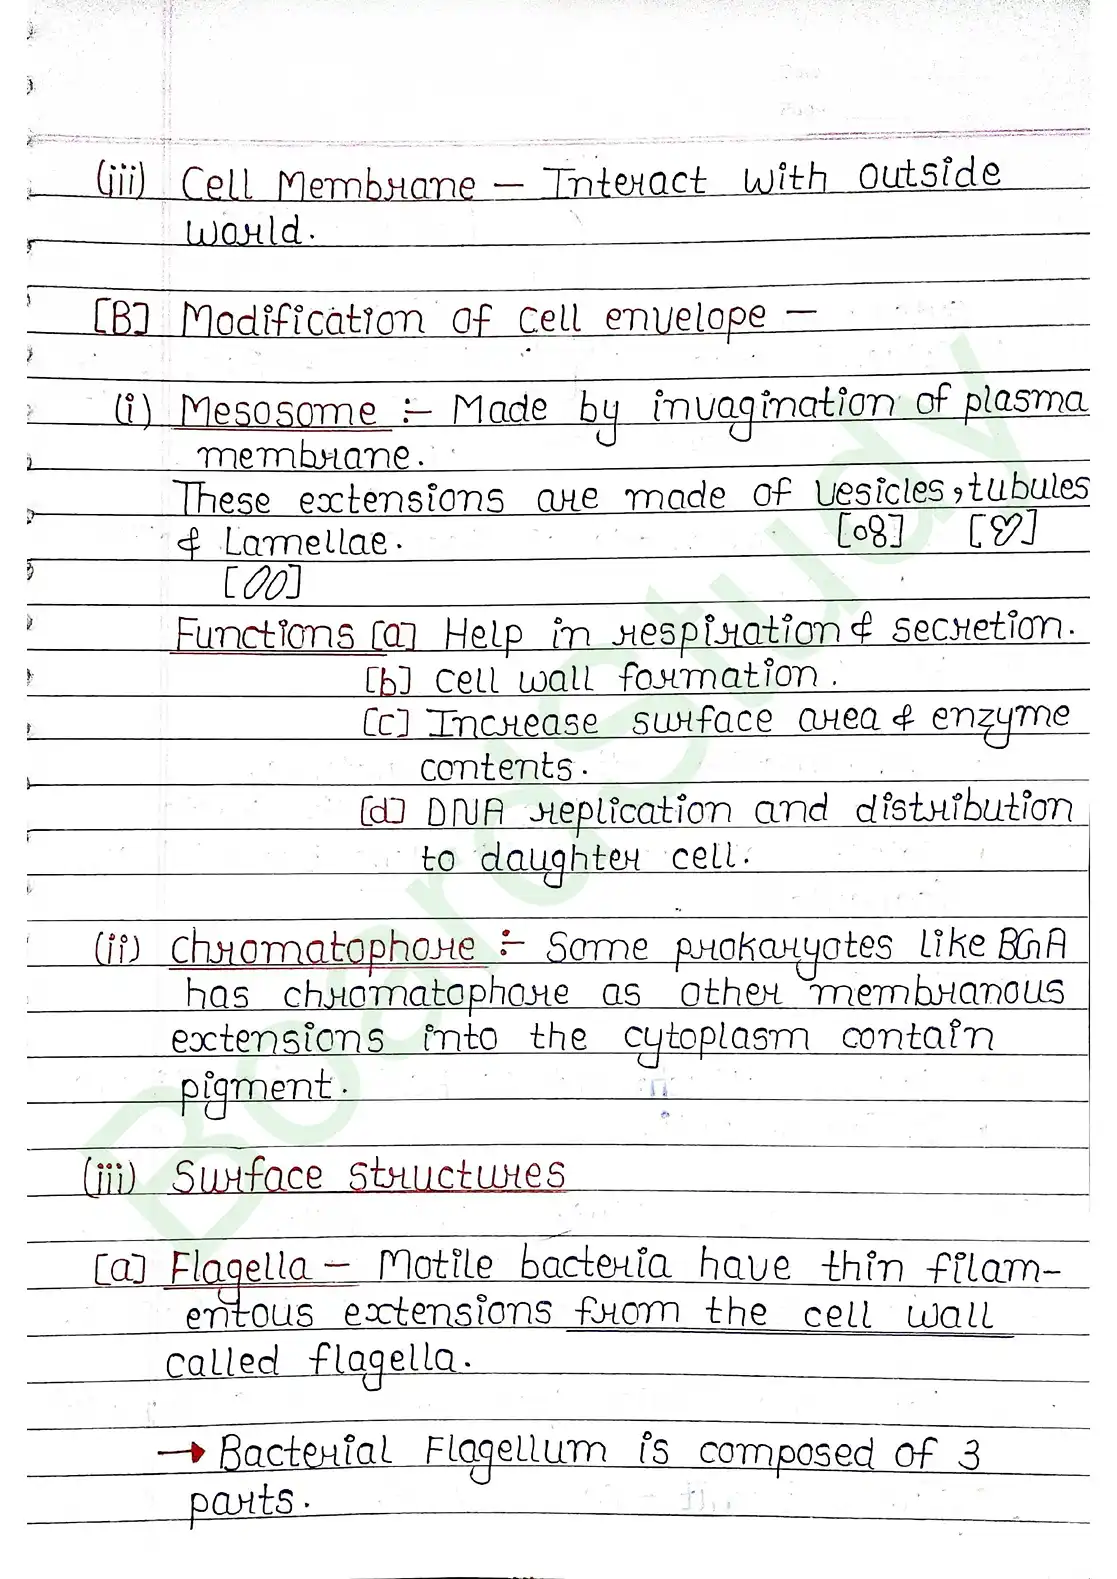 (iii) Cell Membrane – Interact with outside
world.
[B] Modification of cell envelope –
(i) Mesosome :- Made by invagination of plasma
membrane.
These extensions are made of vesicles, tubules
& Lamellae.
Functions [a] Help in respiration & secretion.
[b] cell wall formation.
[c] Increase surface area & enzyme
contents.
[d] DNA replication and distribution
to daughter cell.
(ii) chromatophore :- Some prokaryotes like BGA
has chromatophore as other membranous
extensions into the cytoplasm contain
pigment.
(iii) Surface structures
[a] Flagella – Motile bacteria have thin filam-
entous extensions from the cell wall
called flagella.
→ Bacterial Flagellum is composed of 3
parts.
BoardStudy